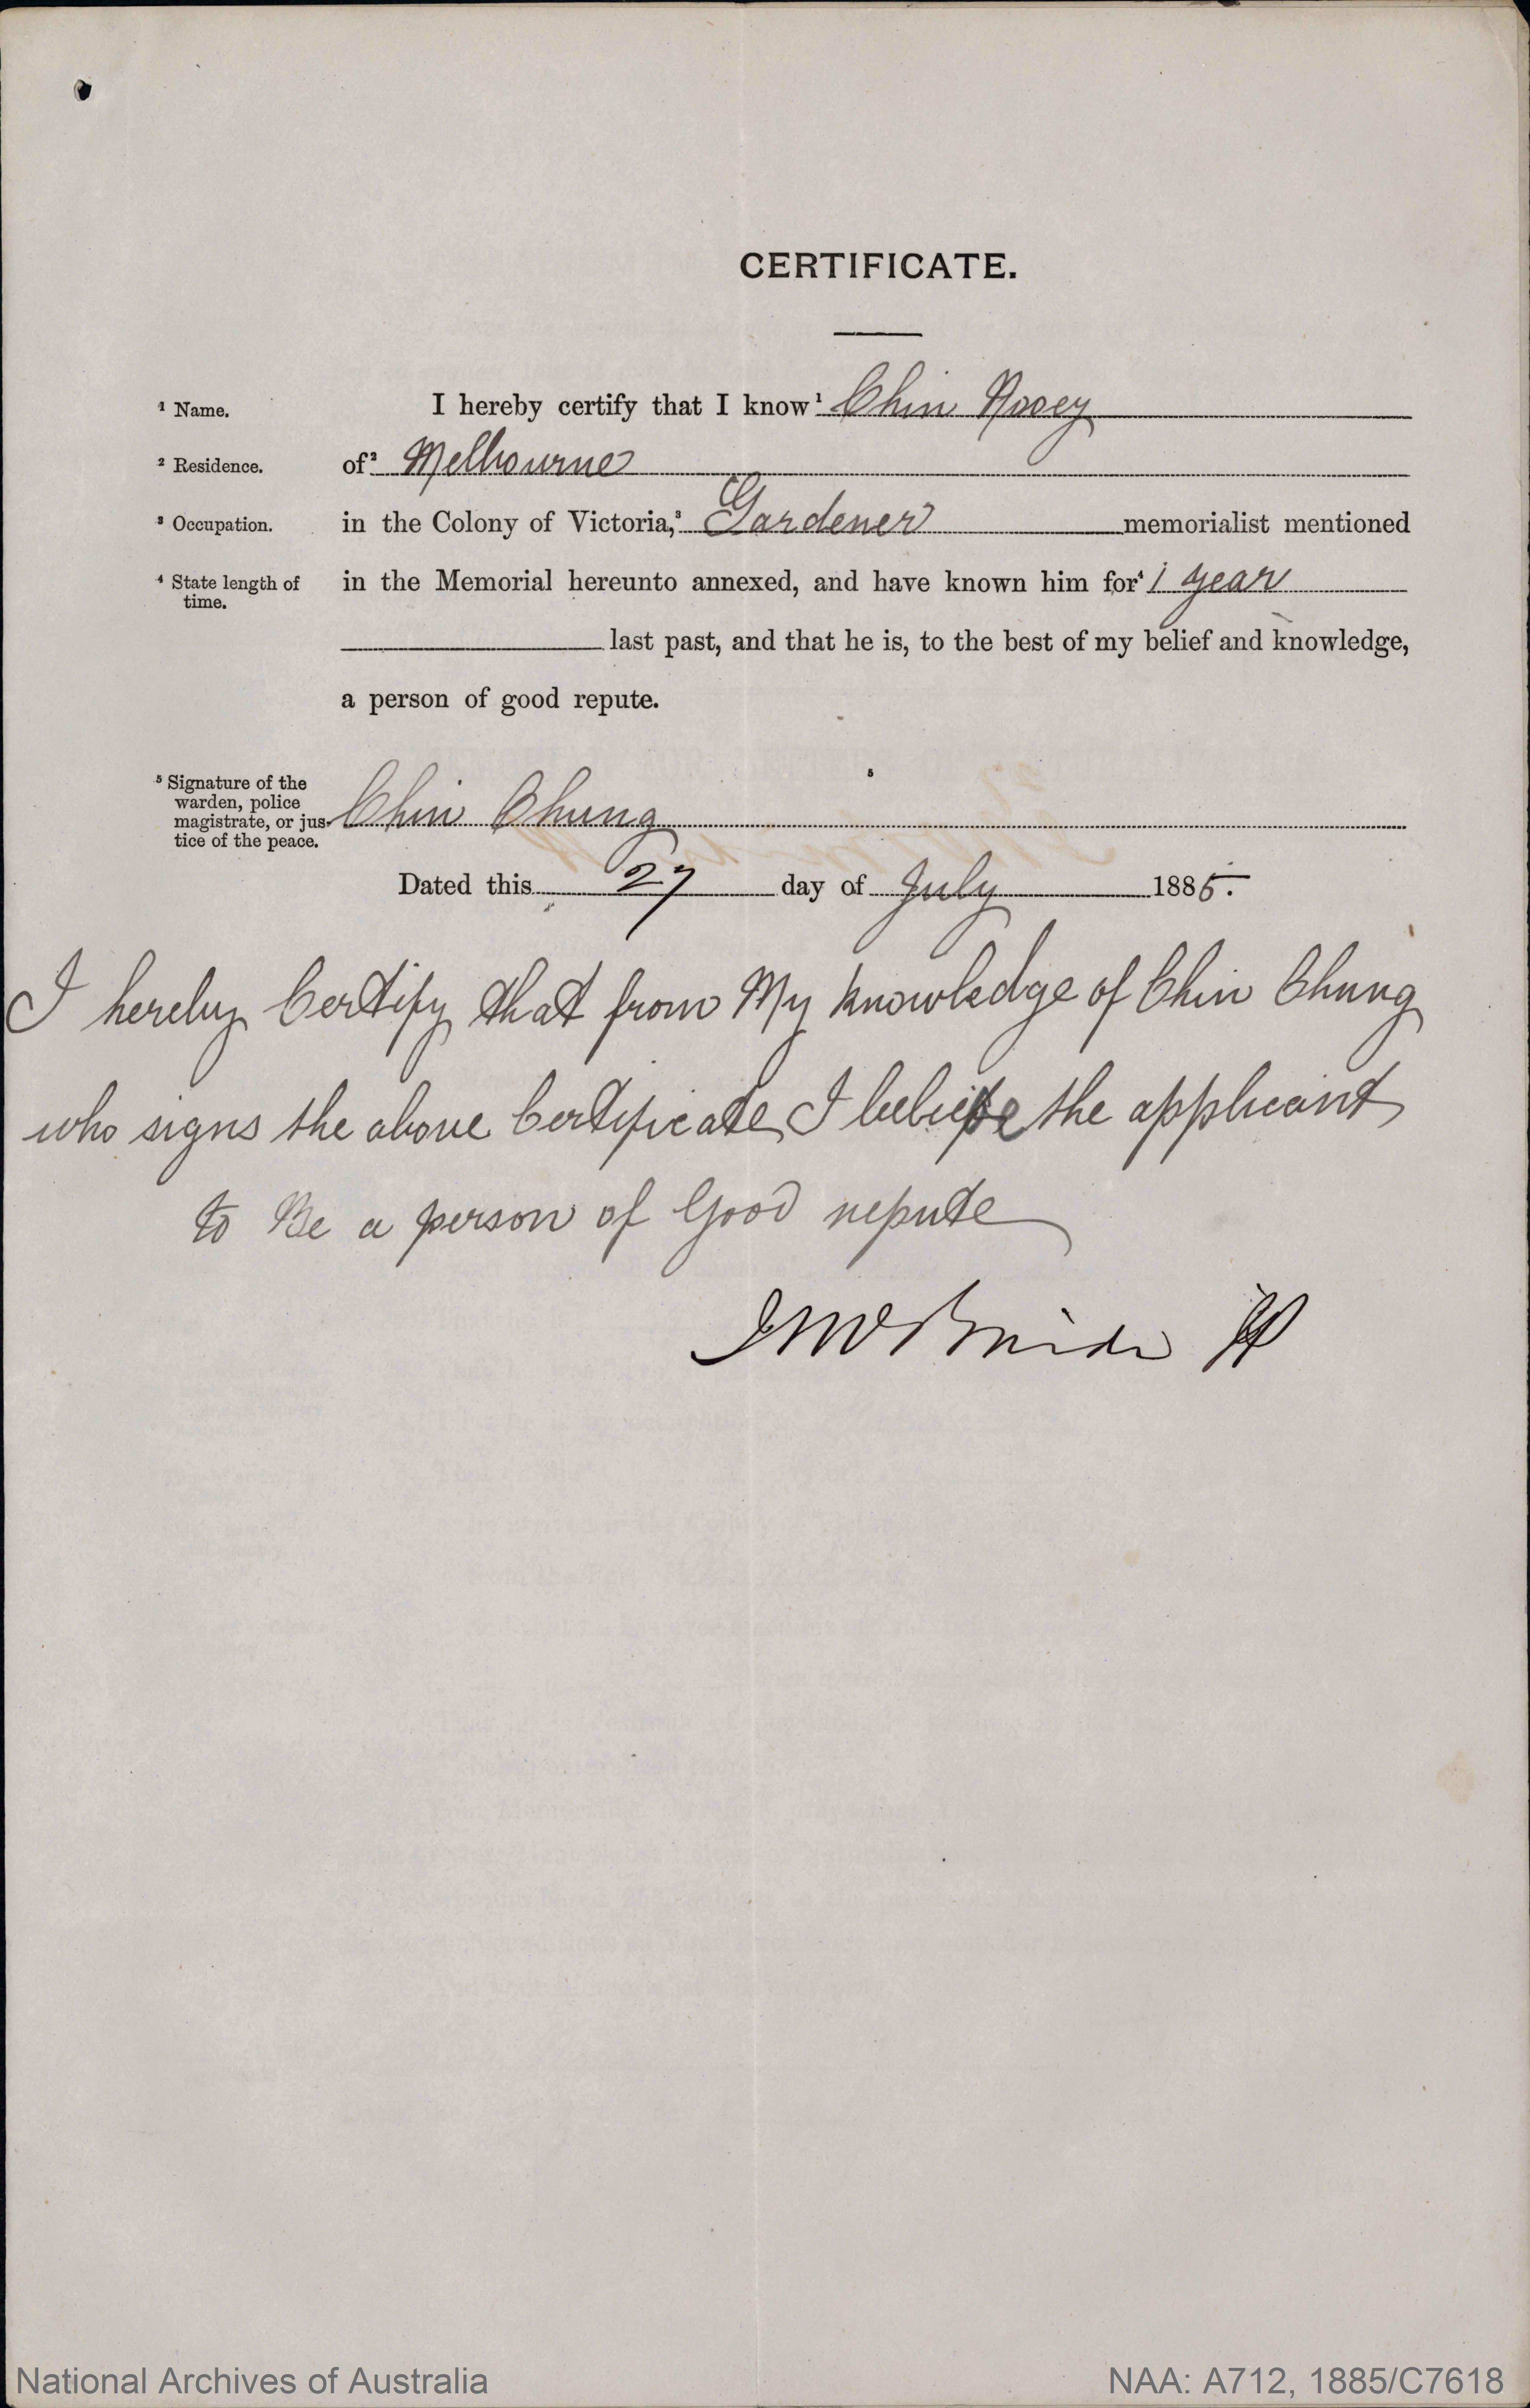 CERTIFICATE.
¹ Name. I hereby certify that I know¹ Chin Nooey
² Residence. of² Melbourne
³ Occupation. in the Colony of Victoria,³ Gardener memorialist mentioned
⁴ State length of time. in the Memorial hereunto annexed, and have known him for⁴ 1 year
last past, and that he is, to the best of my belief and knowledge,
a person of good repute.
⁵ Signature of the
warden, police
magistrate, or jus-
tice of the peace.
⁵
Chin Chung
Dated this 27 day of July 1885.
I hereby Certify that from My knowledge of Chin Chung
who signs the above Certificate I believe the applicant
to Be a person of Good repute
J McBride JP
National Archives of Australia
NAA: A712, 1885/C7618